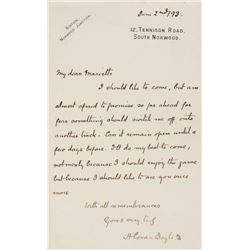 June 2nd /93.
STATION,
NORWOOD JUNCTION.
12, TENNISON ROAD,
SOUTH NORWOOD.
My dear Marriott
I should like to come, but am
almost afraid to promise so far ahead for
fear something should switch me off onto
another track. Can it remain open until a
few days before. I'll do my best to come,
not merely because I should enjoy the game
but because I should like to see you once
more
With all remembrances
Yours very truly
A Conan Doyle